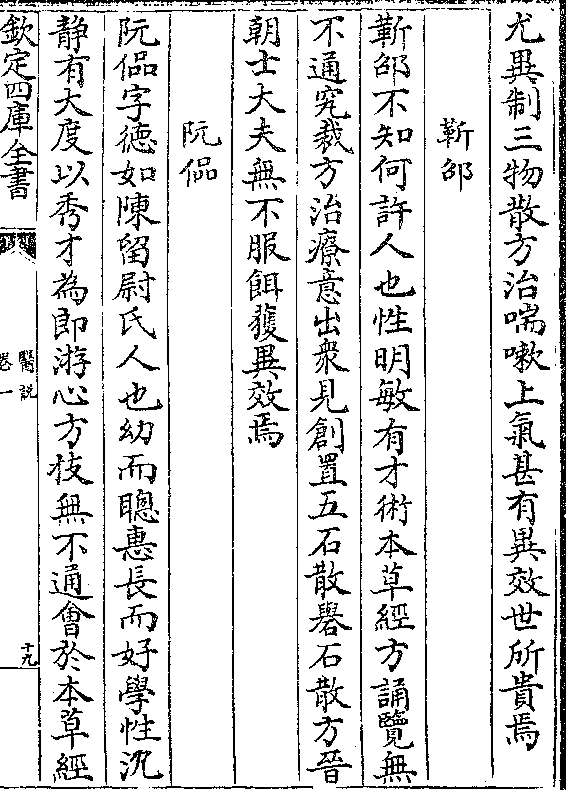 尤異制三物散方治喘嗽上氣甚有異效世所貴焉
靳邵
靳邵不知何許人也性明敏有才術本草經方誦覽無
不通究裁方治療意出衆見創置五石散礜石散方晉
朝士大夫無不服餌獲異效焉
阮偘
阮偘字德如陳留尉氏人也幼而聰惠長而好學性沉
静有大度以秀才為郎游心方技無不通會於本草經
欽定四庫全書
醫説
卷一
十九